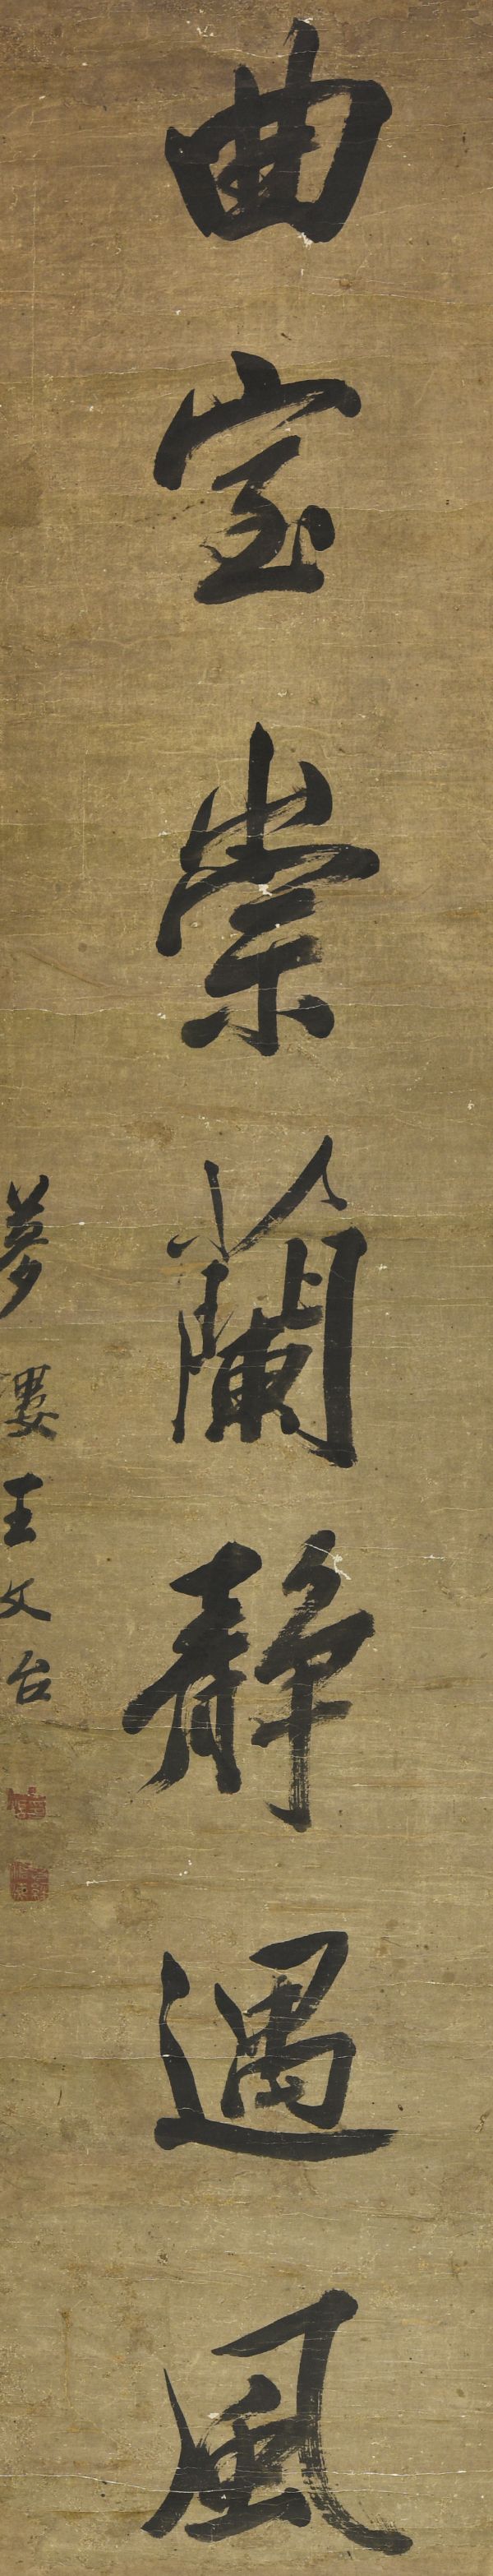 曲室崇蘭靜遇風
夢樓王文治